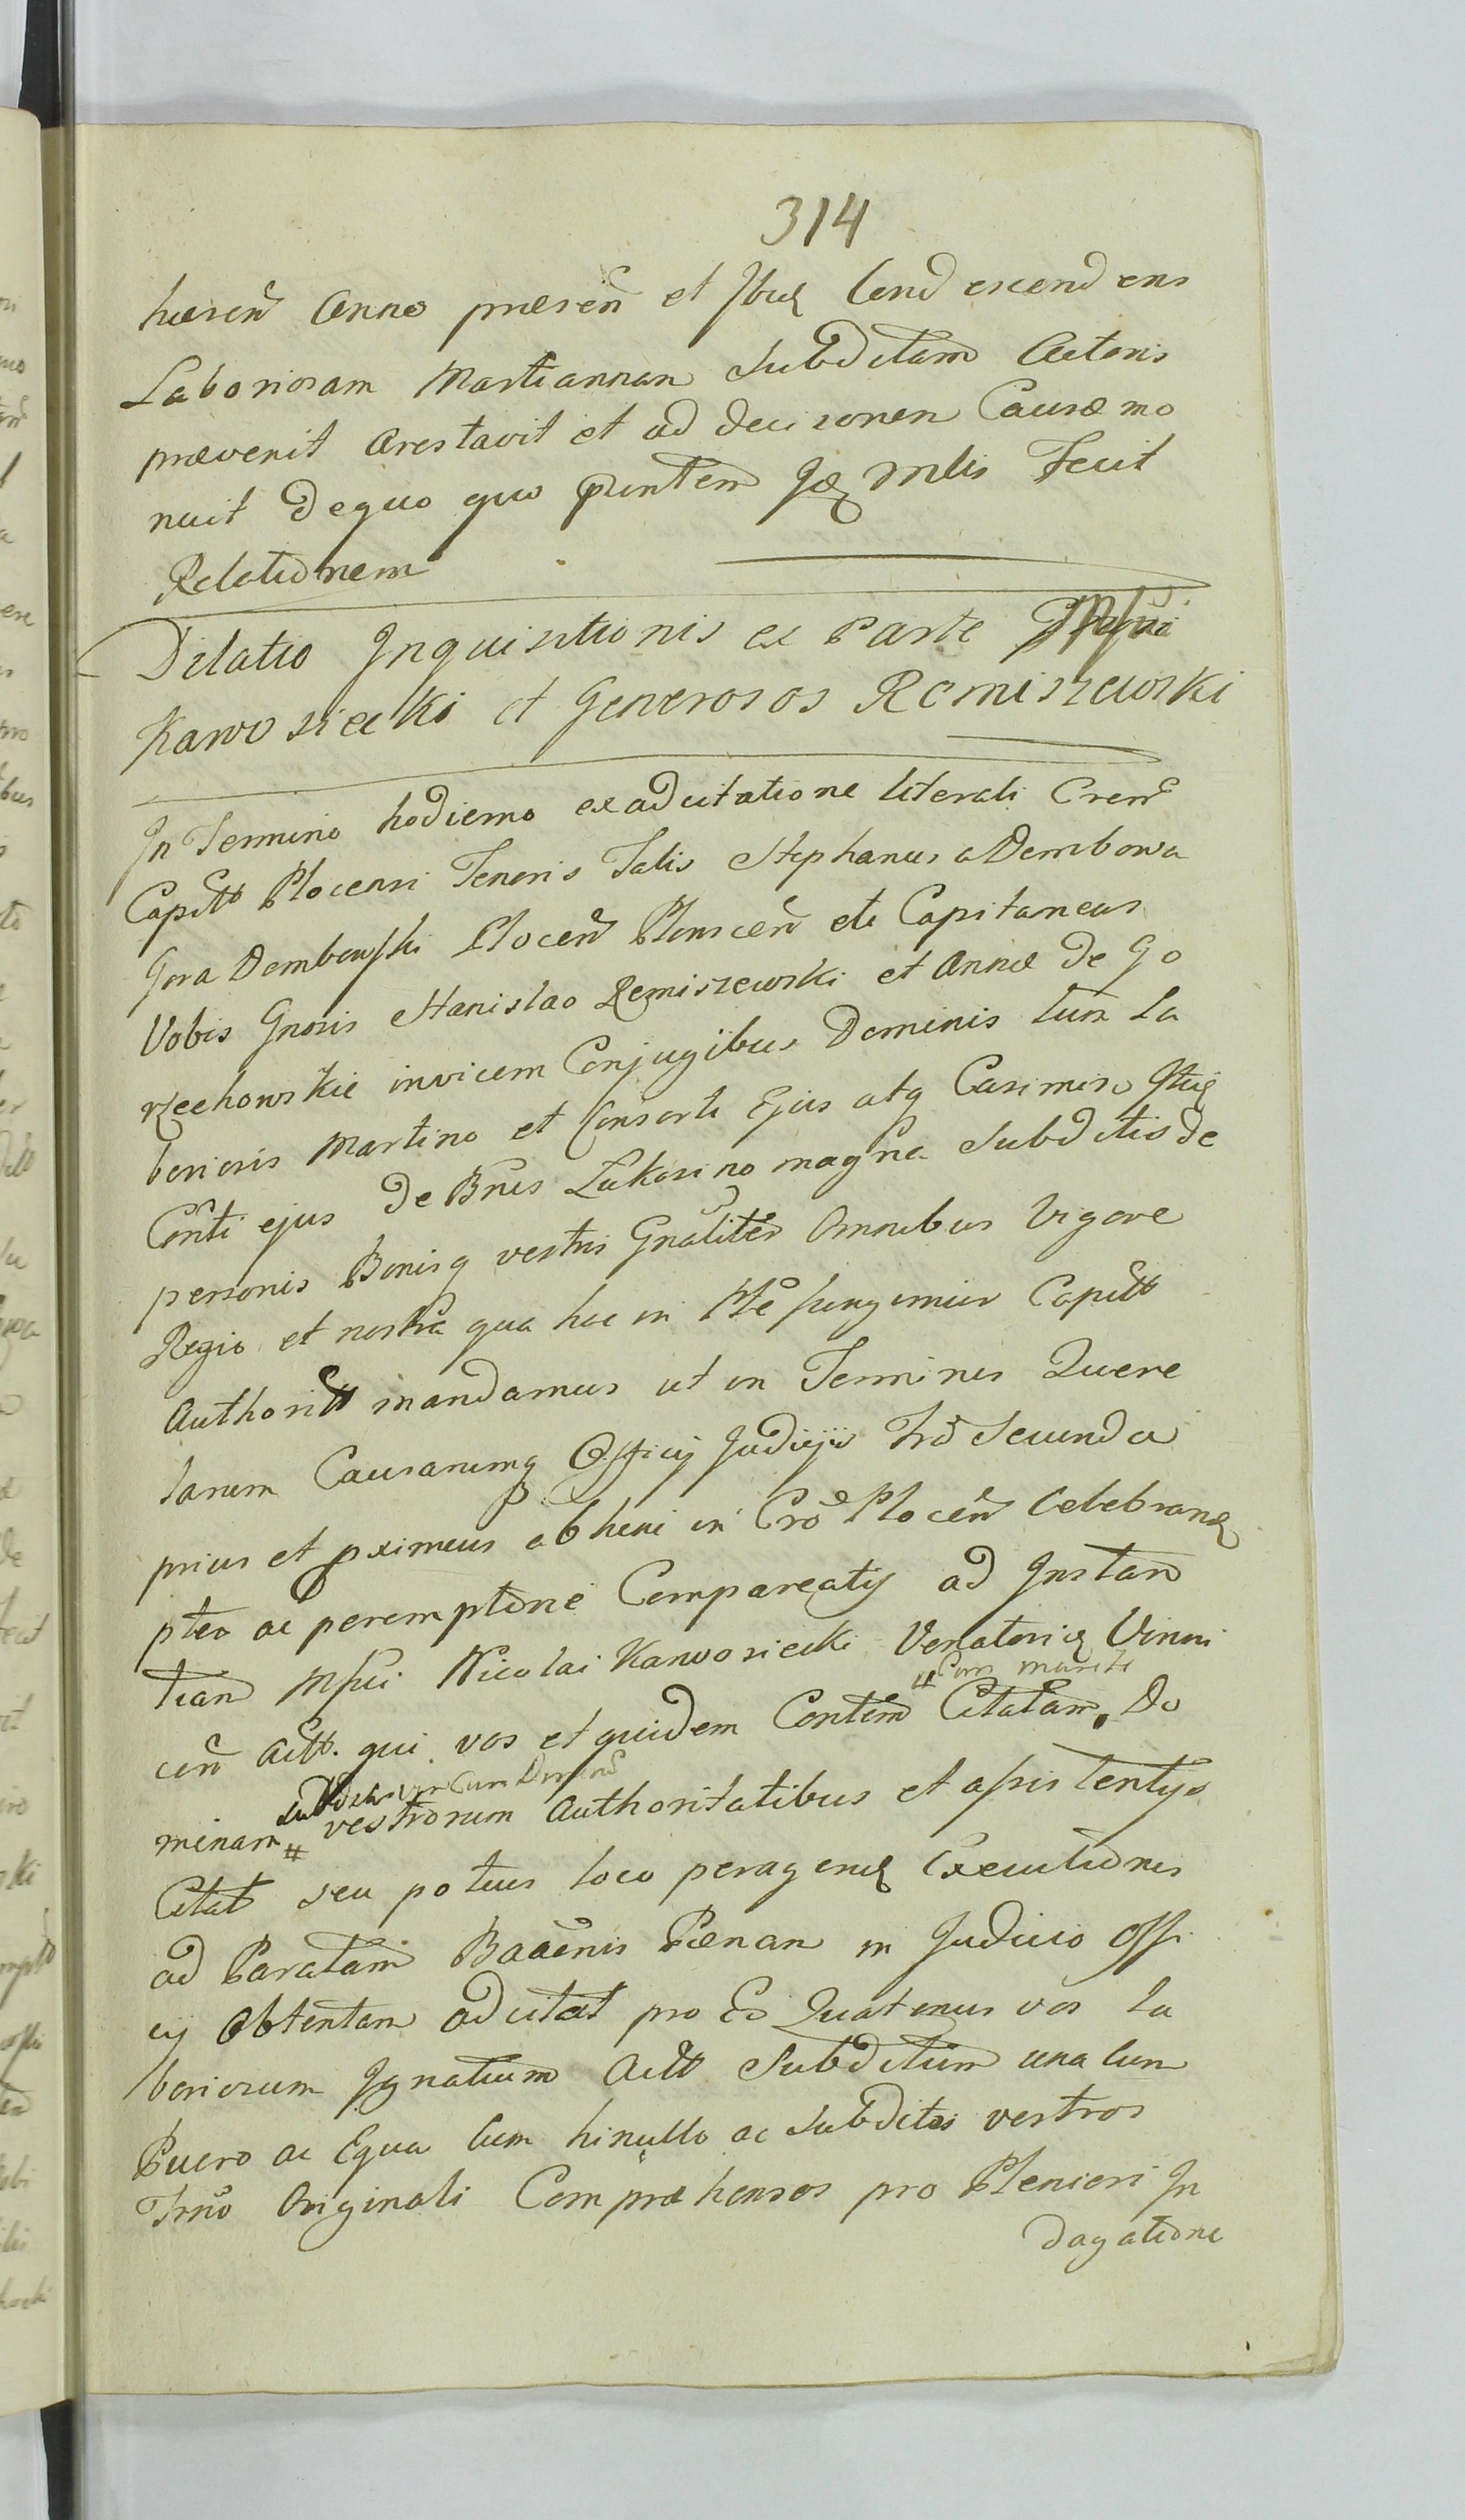 314
hæren Anno præsen et Ibid Condescendens
Laboriosam Martiannam Subditam Actoris
prævenit Arestavit et ad decisionem Causæ mo
nuit de quo quo puntem Idem Mlis Fecit
Relationem
Dilatio Inquisitionis ex Parte
Karwosiecki et Generosos Remiszewski
In Termino hodierno ex adcitatione literali Cren
Capitt Plocensi Tenoris Talis Stephanus a Dembowa
Gora Dembowski Plocen Plonscen etc Capitaneus
Vobis Gnosis Stanislao Remiszewski et Annæ de Go
rzechowskie invicem Conjugibus Dominis tum La
boriosis Martino et Consorti Ejus atq Casimiro Itid
Conti ejus de Bnis Zukosino magna Subditis de
personis Bonisq vestris Gnaliter Omnibus Vigore
Regio et nostra qua hac in Pte fungimur Capitt
Authoritt mandamus ut in Terminis Quere
larum Causarumq Officij Judicij Frd Secunda
prius et pximeus abheni in Cro Plocen Celebrand
pter ac peremptorie Compareatis ad Instan
tiam Mfici Nicolai Karwosiecki Venatorid Vinni
cen Actt. qui vos et quidem Contem # Citatam Do
# Cum marito
minam # vestrorum Authoritatibus et assistentys
Citat seu potius loco peragend Executionis
ad Paratam Baaenis Pænam in Judicio Offi
cij Obtentam adcitat pro Eo Quatenus vos La
boriosum Ignatium Actt Subditum una cum
Puero ac Equa cum hinullo ac Subditos vestros
Trno Originali Compræhensos pro Pleniori In
dagatione